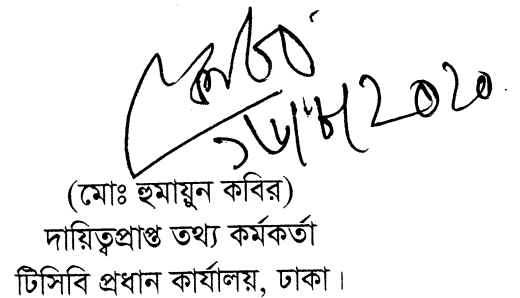 (মোঃ হুমায়ুন কবির)
দায়িত্বপ্রাপ্ত তথ্য কর্মকর্তা
টিসিবি প্রধান কার্যালয়, ঢাকা।